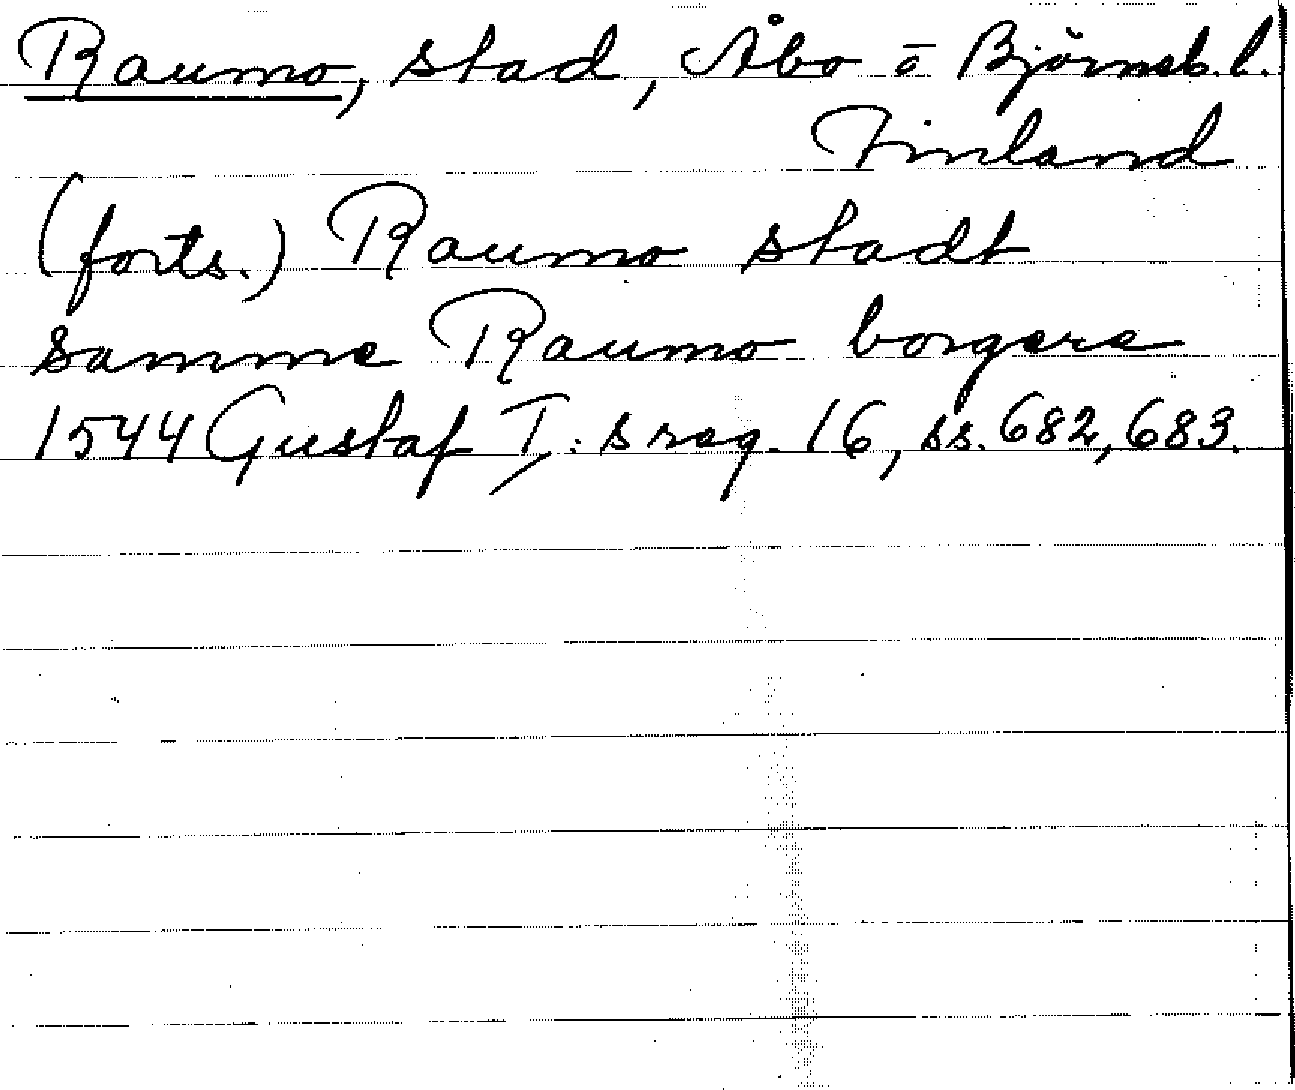 Raumo, stad, Åbo o Björneb. l.
Finland
(forts.) Raumo stadt
samme Raumo borgere
1544 Gustaf I: s reg. 16, ss. 682, 683.